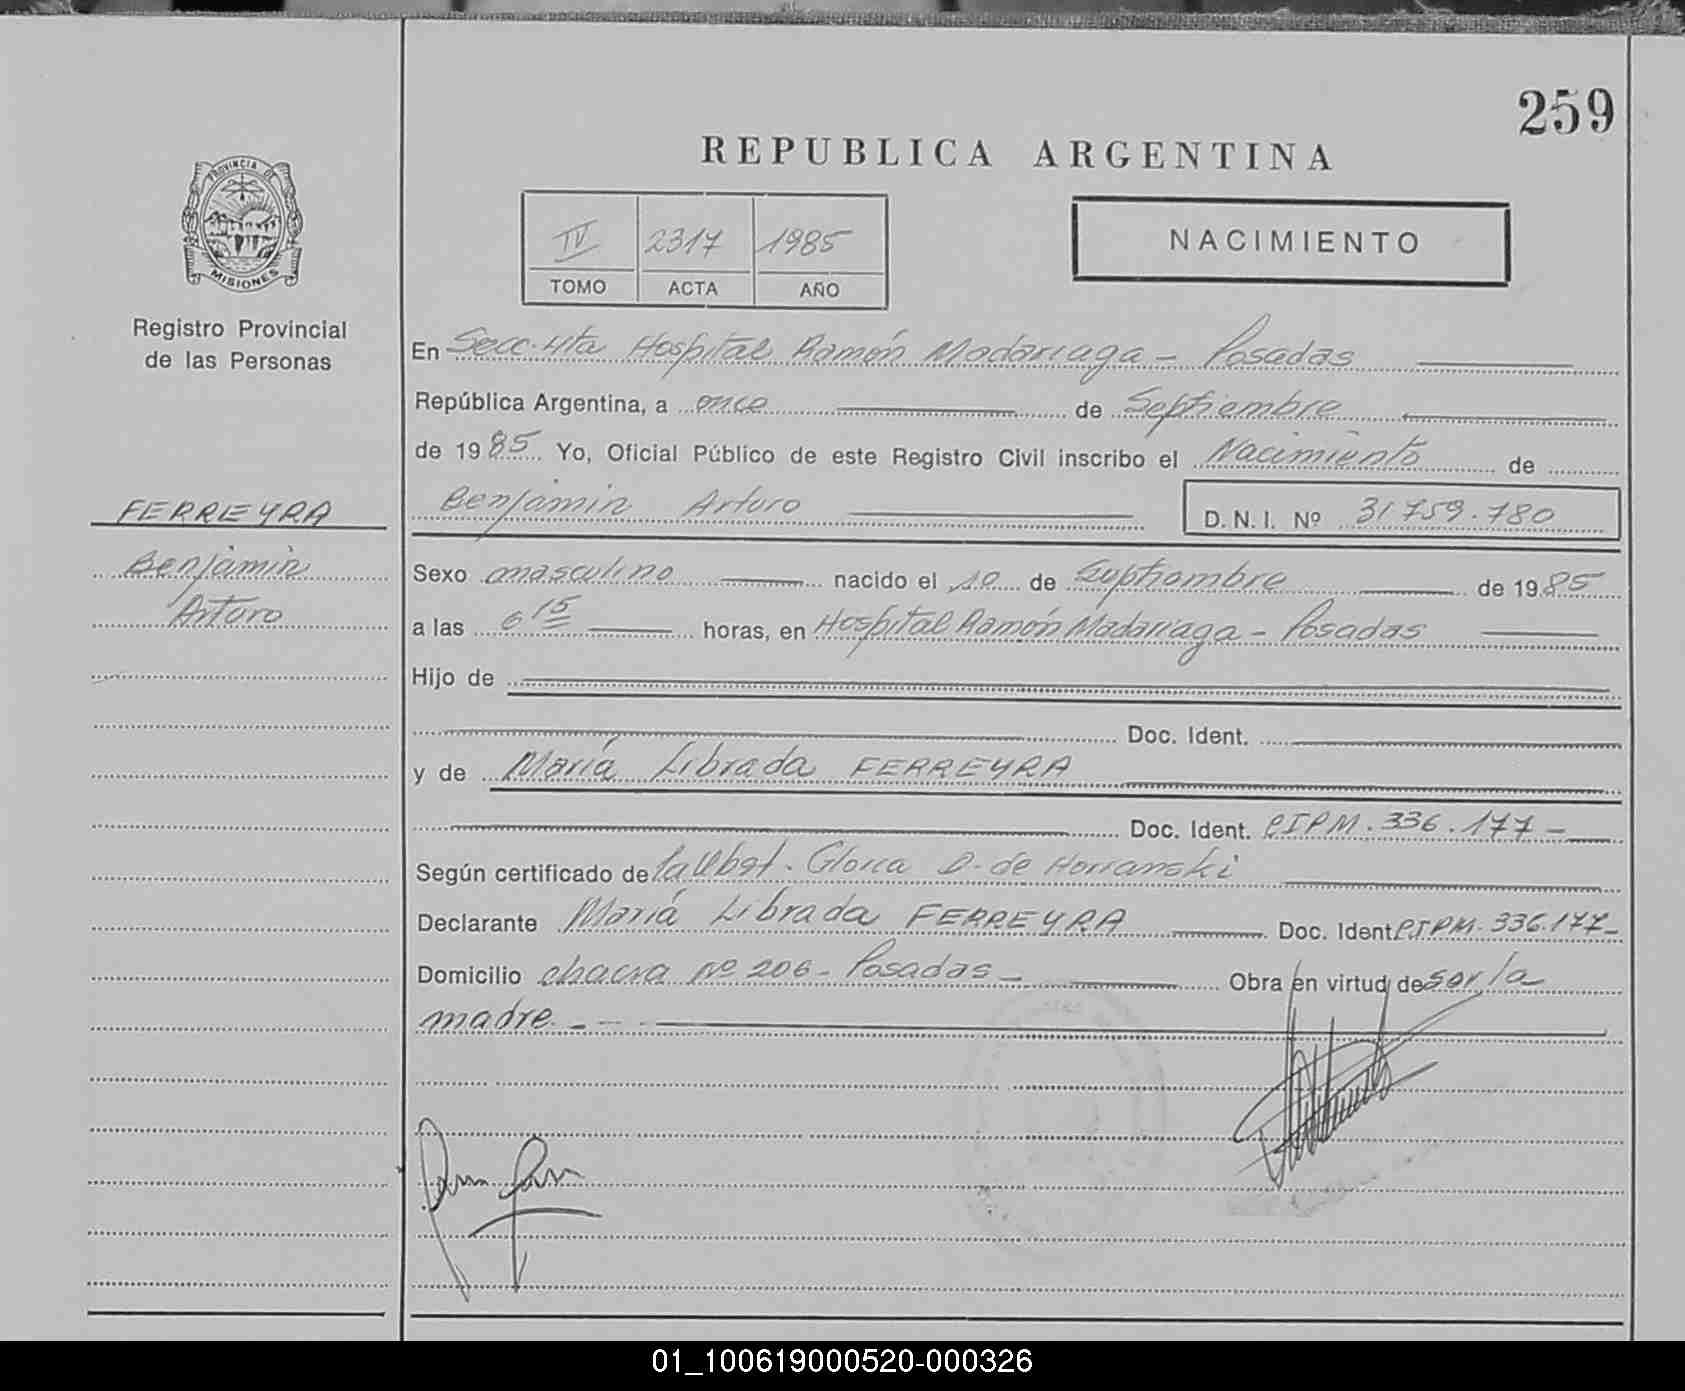 259
REPUBLICA ARGENTINA
PROVINCIA DE
MISIONES
Registro Provincial
de las Personas
IV 2317 1985
TOMO ACTA AÑO
NACIMIENTO
En Secc. 4ta Hospital Ramón Madariaga - Posadas
República Argentina, a once de Septiembre
de 1985 Yo, Oficial Público de este Registro Civil inscribo el Nacimiento de
Benjamin Arturo D.N.I. Nº 31.759.780
FERREYRA
Benjamin
Arturo
Sexo masculino nacido el 10 de Septiembre de 1985
a las 6 15 horas, en Hospital Ramón Madariaga - Posadas
Hijo de
Doc. Ident.
y de María Librada FERREYRA
Doc. Ident. CIPM. 336.177 -
Según certificado de la Obst. Gloria D. de
Declarante María Librada FERREYRA Doc. Ident CIPM. 336.177-
Domicilio chacra Nº 206 - Posadas - Obra en virtud de ser la
madre. - - -
01_100619000520-000326